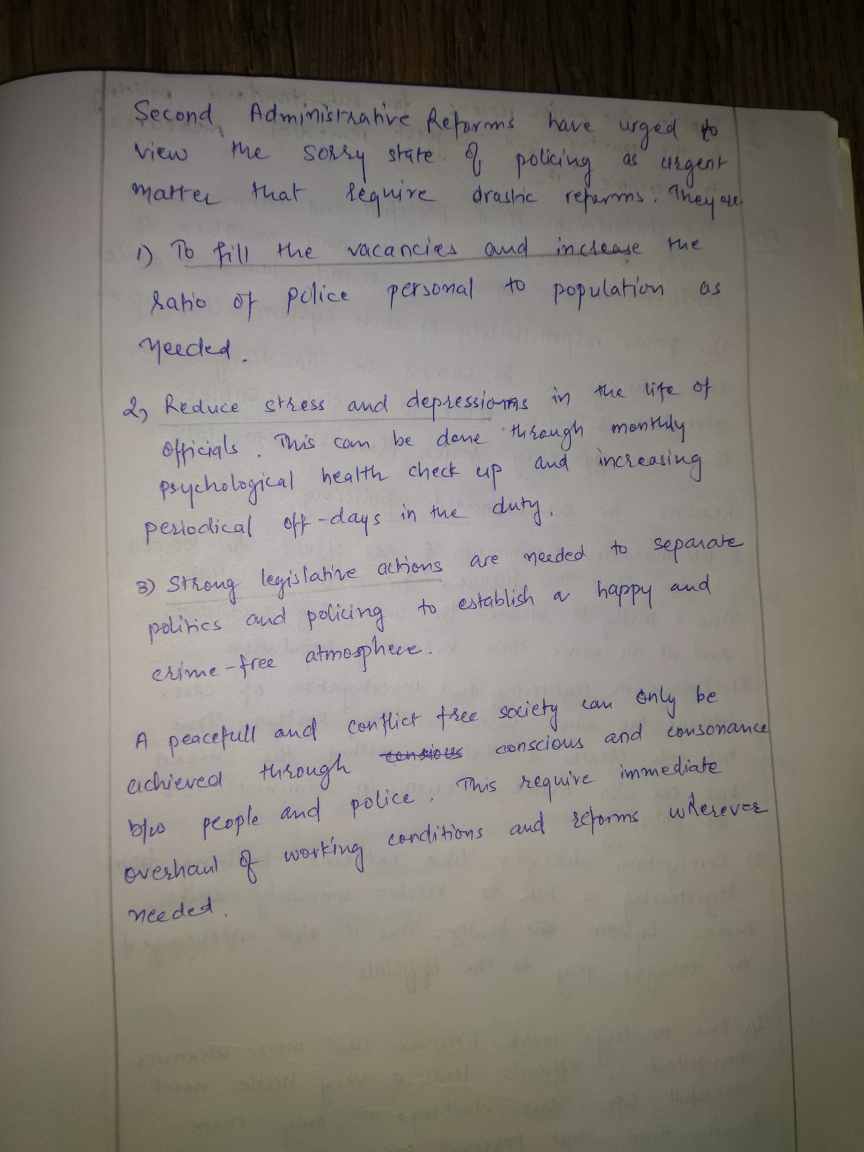 Second Administrative Reforms have urged to
view the sorry state of policing as urgent
matter that require drastic reforms. They are
1) To fill the vacancies and increase the
ratio of police personal to population as
needed.
2, Reduce stress and depressions in the life of
officials. This can be done through monthly
psychological health check up and increasing
periodical off-days in the duty.
3) Strong legislative actions are needed to separate
politics and policing to establish a happy and
crime-free atmosphere.
A peacefull and conflict free society can only be
achieved through consious conscious and consonance
b/w people and police. This require immediate
overhaul of working conditions and reforms wherever
needed.